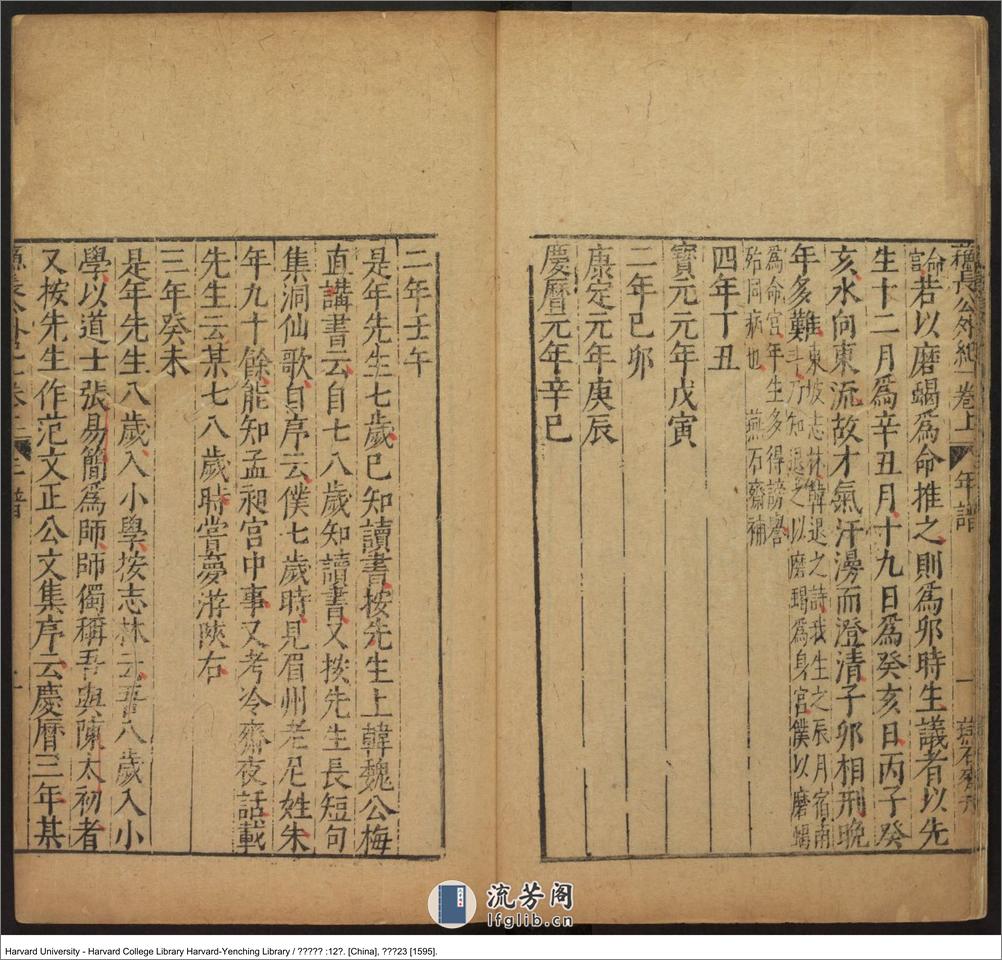 蘇長公外紀 卷上 年譜 一 燕石齋
論若以磨蝎爲命推之則爲卯時生議者以先
生十二月爲辛丑月十九日爲癸亥日丙子癸
亥水向東流故才氣汗漫而澄清子卯相刑晚
年多難
東坡志林韓退之詩我生之辰月宿南
斗乃知退之以磨蝎爲身宮僕以磨蝎
爲命宮平生多得謗譽
殆同病也 燕石齋補
四年丁丑
寶元元年戊寅
二年己卯
康定元年庚辰
慶曆元年辛巳
二年壬午
是年先生七歲已知讀書按先生上韓魏公梅
直講書云自七八歲知讀書又按先生長短句
集洞仙歌自序云僕七歲時見眉州老尼姓朱
年九十餘能知孟昶宮中事又考冷齋夜話載
先生云某七八歲時嘗夢游陝右
三年癸未
是年先生八歲入小學按志林云吾八歲入小
學以道士張易簡爲師師獨稱吾與陳太初者
又按先生作范文正公文集序云慶曆三年某
流芳阁
lfglib.cn
Harvard University - Harvard College Library Harvard-Yenching Library / ????? :12?. [China], ???23 [1595].